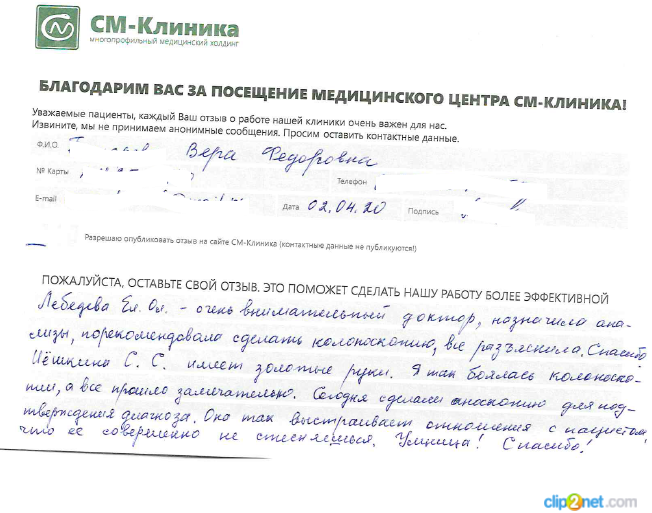 СМ-Клиника
многопрофильный медицинский холдинг
БЛАГОДАРИМ ВАС ЗА ПОСЕЩЕНИЕ МЕДИЦИНСКОГО ЦЕНТРА СМ-КЛИНИКА!
Уважаемые пациенты, каждый Ваш отзыв о работе нашей клиники очень важен для нас.
Извините, мы не принимаем анонимные сообщения. Просим оставить контактные данные.
Ф.И.О. Вера Федоровна
№ Карты Телефон
E-mail Дата 02.04.20 Подпись
Разрешаю опубликовать отзыв на сайте СМ-Клиника (контактные данные не публикуются!)
ПОЖАЛУЙСТА, ОСТАВЬТЕ СВОЙ ОТЗЫВ. ЭТО ПОМОЖЕТ СДЕЛАТЬ НАШУ РАБОТУ БОЛЕЕ ЭФФЕКТИВНОЙ
Лебедева Ел. Ол. - очень внимательный доктор, назначила ана-
лизы, порекомендовала сделать колоноскопию, все разъяснила. Спасибо!
С. С. имеет золотые руки. Я так боялась колоноско-
пии, а все прошло замечательно. Сегодня сделали аноскопию для под-
тверждения диагноза. Она так выстраивает отношения с пациентом,
что ее совершенно не стесняешься. Умница! Спасибо!
clip2net.com